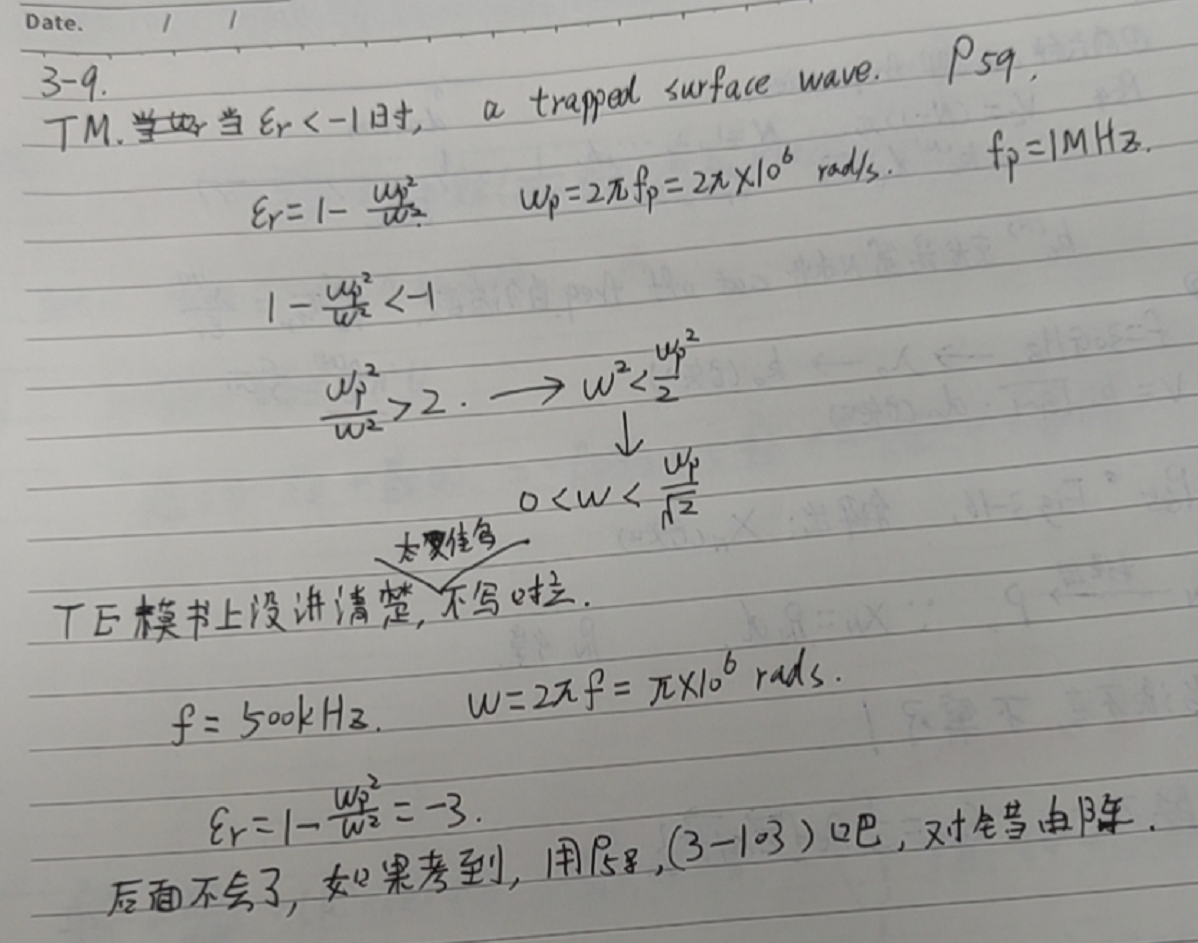 Date. / /
3-9.
TM. 当 εr < -1时, a trapped surface wave. P59.
εr = 1 - ωp²/ω² ωp = 2πfp = 2π×10⁶ rad/s. fp = 1MHz.
1 - ωp²/ω² < -1
ωp²/ω² > 2. → ω² < ωp²/2
↓
0 < ω < ωp/√2
TE模书上没讲清楚, 不写
f = 500kHz. ω = 2πf = π×10⁶ rads.
εr = 1 - ωp²/ω² = -3.
后面不会了, 如果考到, 用P58, (3-103) 吧, 对错